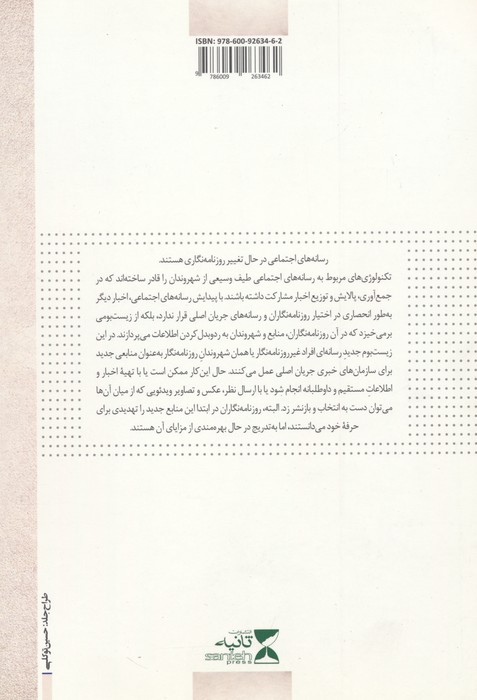 ISBN: 978-600-92634-6-2
9 786009 263462
رسانه‌های اجتماعی در حال تغییر روزنامه‌نگاری هستند.
تکنولوژی‌های مربوط به رسانه‌های اجتماعی طیف وسیعی از شهروندان را قادر ساخته‌اند که در
جمع‌آوری، پالایش و توزیع اخبار مشارکت داشته باشند. با پیدایش رسانه‌های اجتماعی، اخبار دیگر
به‌طور انحصاری در اختیار روزنامه‌نگاران و رسانه‌های جریان اصلی قرار ندارد، بلکه از زیست‌بومی
برمی‌خیزد که در آن روزنامه‌نگاران، منابع و شهروندان به ردوبدل کردن اطلاعات می‌پردازند. در این
زیست‌بوم جدیدِ رسانه‌ای افراد غیرروزنامه‌نگار یا همان شهروندانِ روزنامه‌نگار به‌عنوان منابعی جدید
برای سازمان‌های خبری جریان اصلی عمل می‌کنند. حال این کار ممکن است یا با تهیهٔ اخبار و
اطلاعاتِ مستقیم و داوطلبانه انجام شود یا با ارسال نظر، عکس و تصاویر ویدئویی که از میان آن‌ها
می‌توان دست به انتخاب و بازنشر زد. البته، روزنامه‌نگاران در ابتدا این منابع جدید را تهدیدی برای
حرفهٔ خود می‌دانستند، اما به‌تدریج در حال بهره‌مندی از مزایای آن هستند.
طراح جلد: حسین توکلی
نشر
ثانیه
sanieh
press